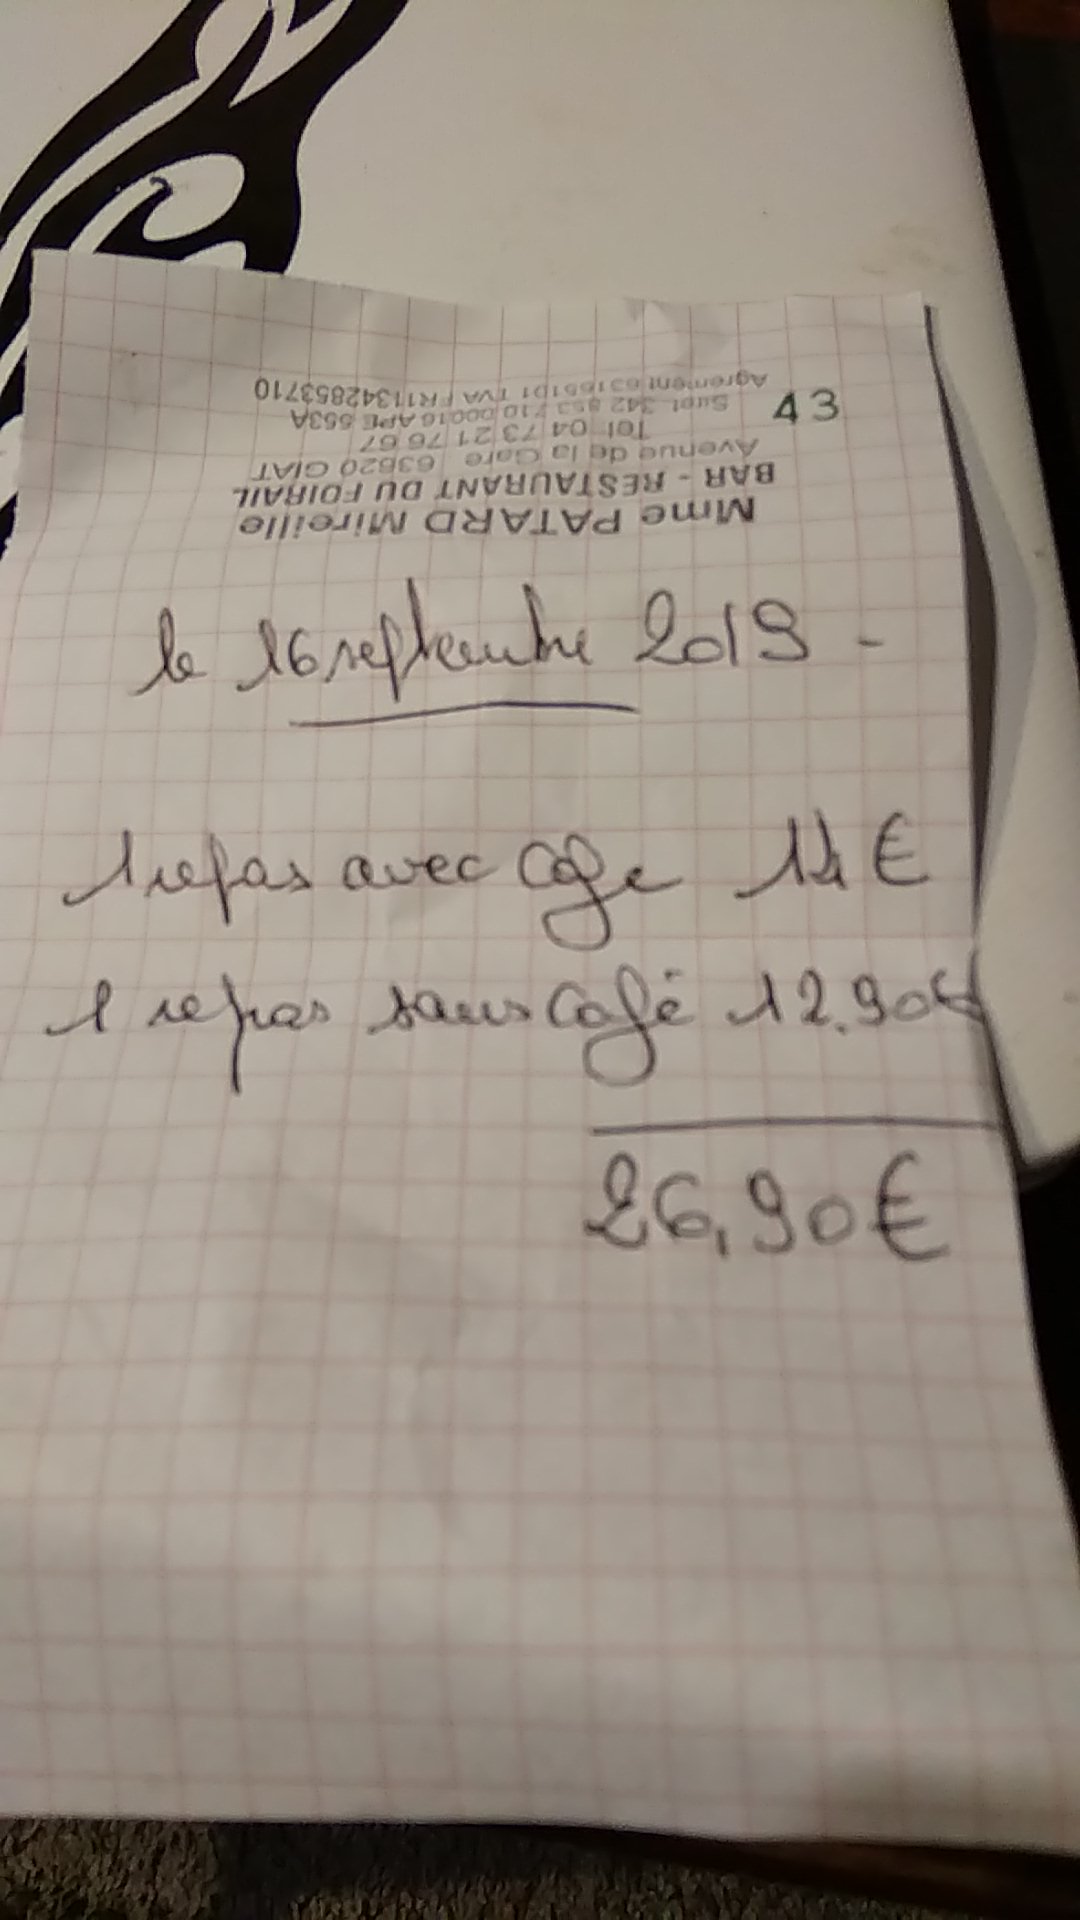 Mme PATARD Mireille
BAR - RESTAURANT DU FOIRAIL
Avenue de la Gare 63620 GIAT
Tel 04 73 21 76 67
Siret 342 853 710 00016 APE 553A
Agrement TVA FR11342853710
43
le 16 septembre 2019 -
1 repas avec cafe 14 €
1 repas sans café 12.90€
26,90€